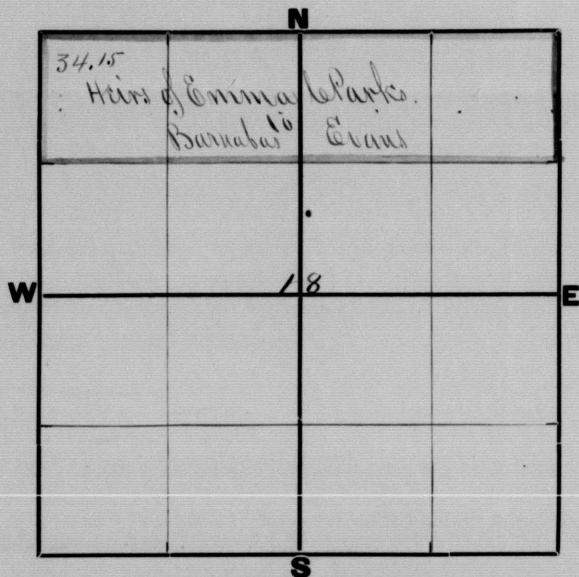 N
34.15
Heirs of Emma C Parks.
to
Barnabas Evans
W
18
E
S